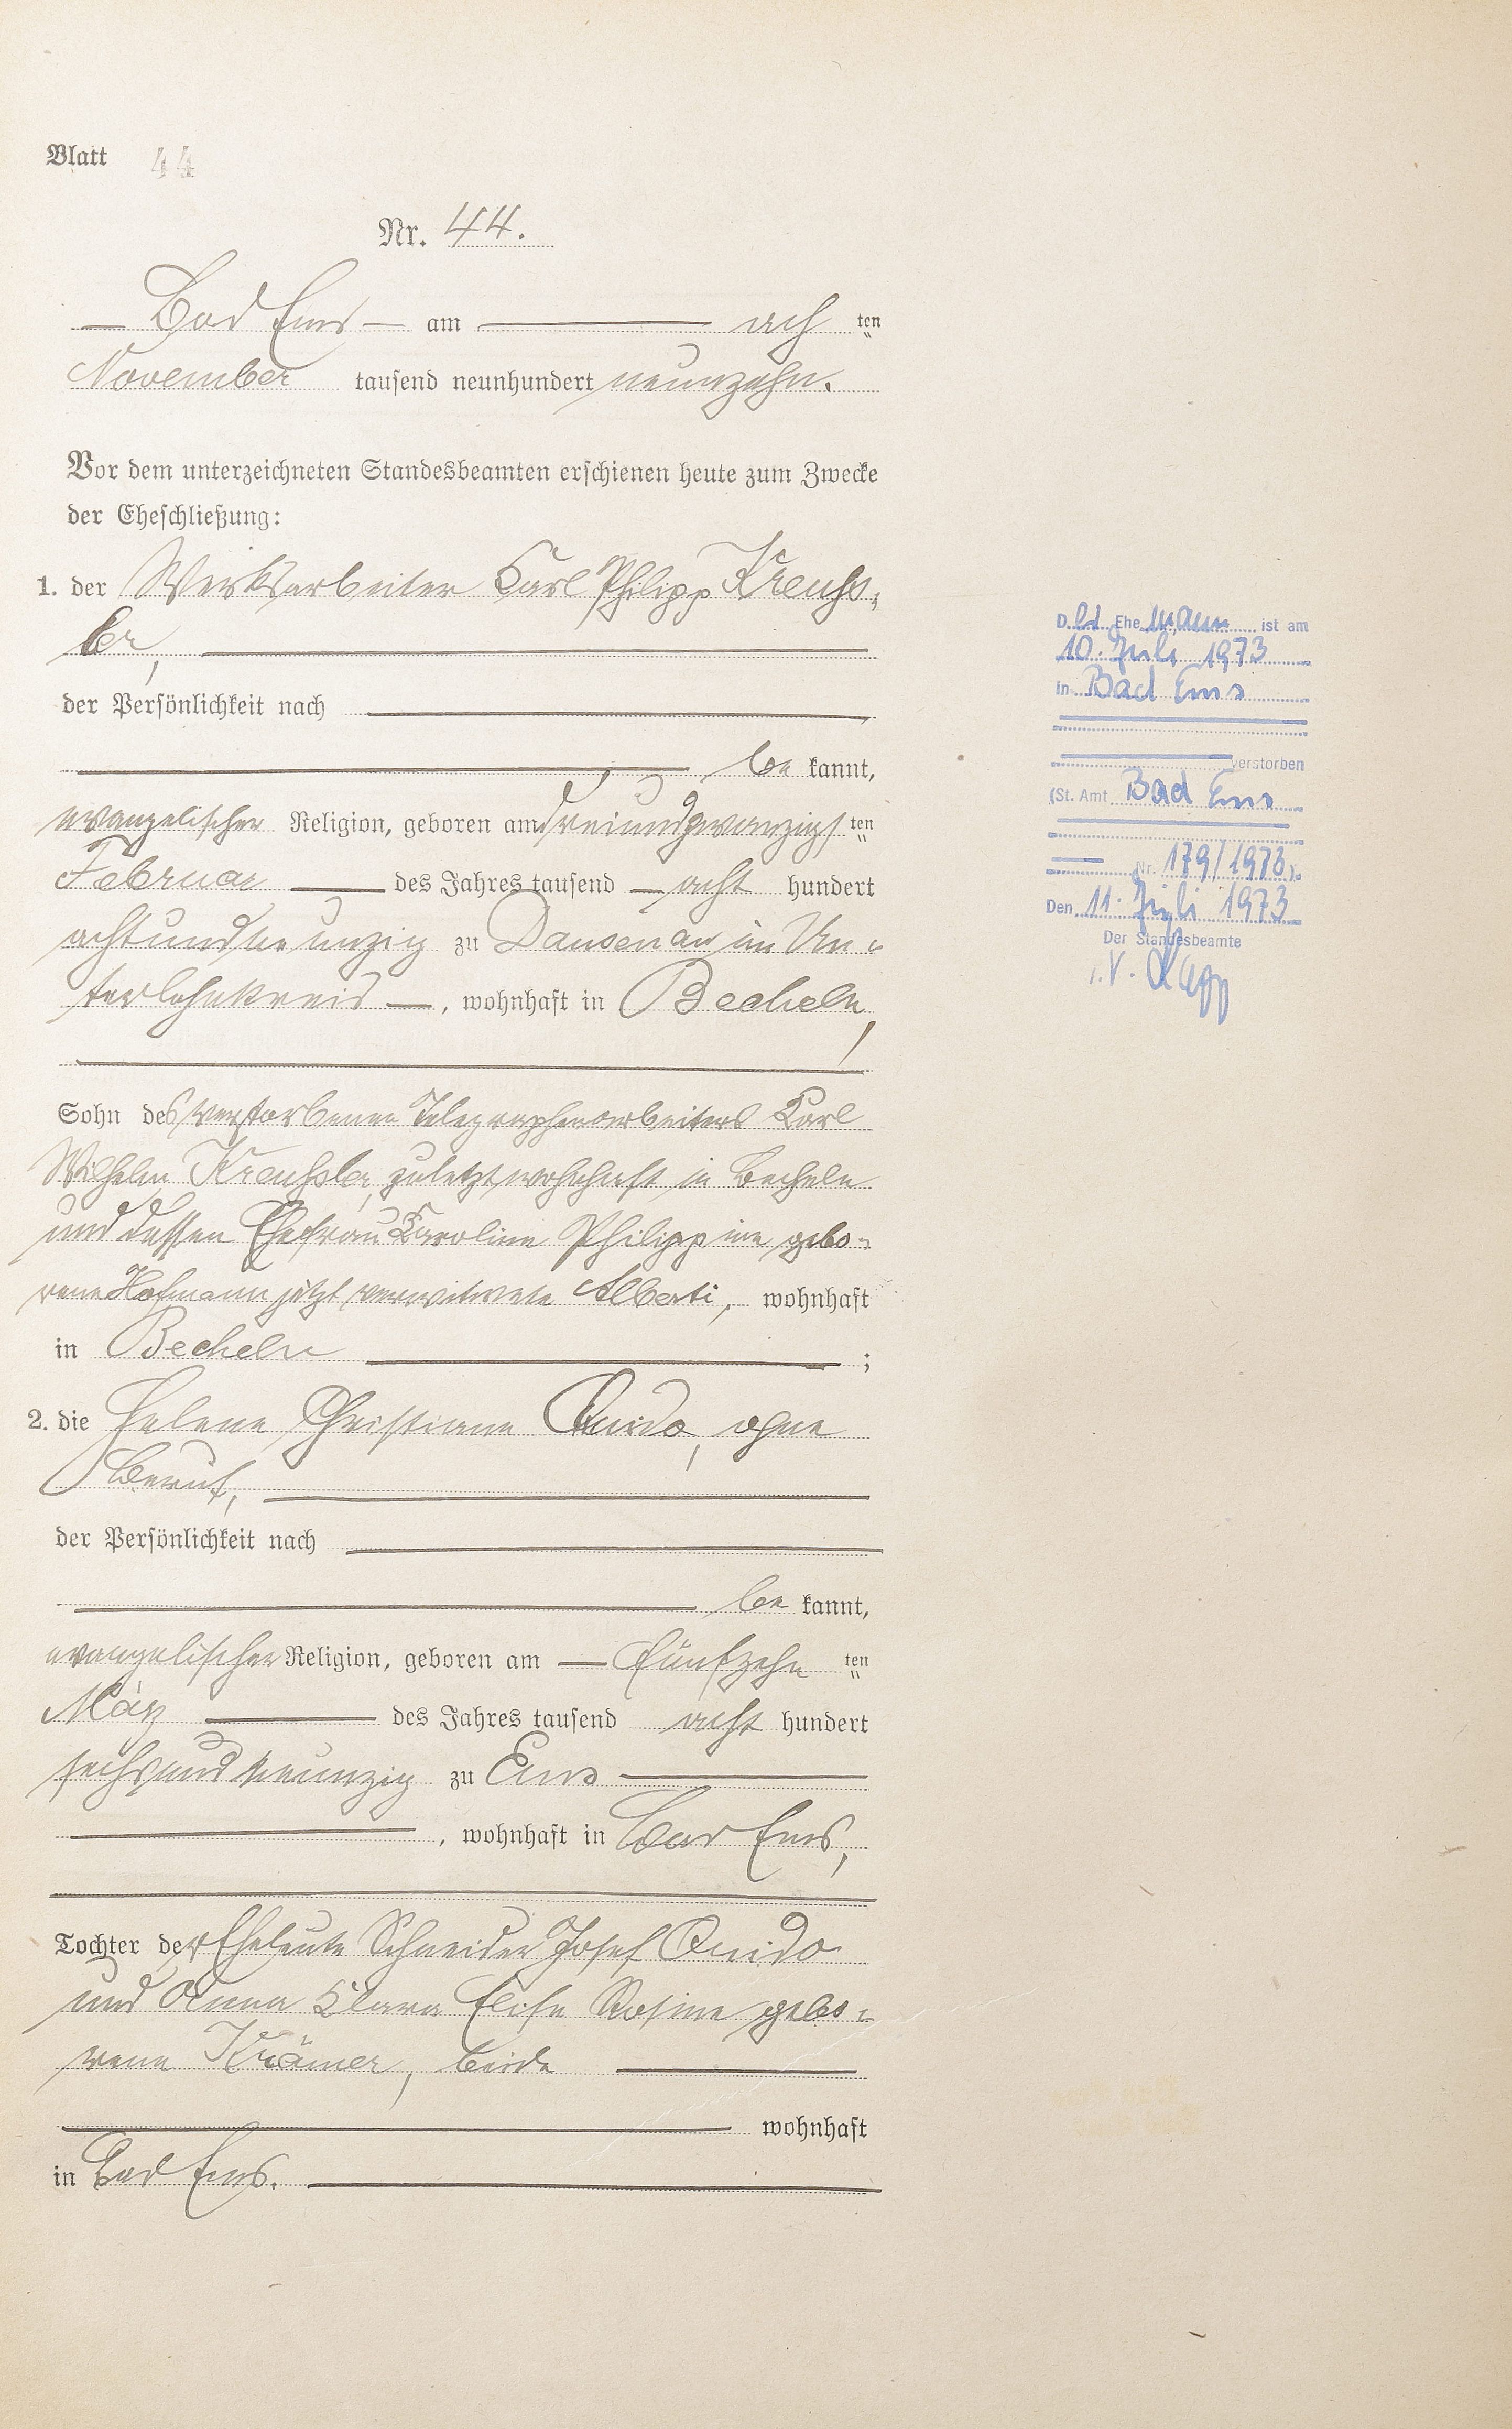 Blatt 44
Nr. 44.
— Bad Ems — am — ach ten
November tausend neunhundert neunzehn.
Vor dem unterzeichneten Standesbeamten erschienen heute zum Zwecke
der Eheschließung:
1. der Werksarbeiter Karl Philipp Kreuhs-
ler,
der Persönlichkeit nach
be kannt,
evangelischer Religion, geboren am dreiundzwanzigs ten
Februar — des Jahres tausend — acht hundert
achtundneunzig zu Dausenau im Un-
terlahnkreis —, wohnhaft in Becheln,
Sohn des verstorbenen Telegraphenarbeiters Karl
Wilhelm Kreuhsler, zuletzt wohnhaft in Becheln
und dessen Ehefrau Karoline Philippine gebo-
rene Hofmann jetzt verwitwete Alberti, wohnhaft
in Becheln — ;
2. die Helene Christiane Quido, ohne
Beruf,
der Persönlichkeit nach
be kannt,
evangelischer Religion, geboren am — fünfzehn ten
März — des Jahres tausend acht hundert
sechsundneunzig zu Ems —
, wohnhaft in Bad Ems,
Tochter der Eheleute Schneider Josef Quido
und Anna Klara Elise Rosine gebo-
rene Krämer, beide —
wohnhaft
in Bad Ems.
D. er Ehe mann ist am
10. Juli 1973
in Bad Ems
verstorben
(St. Amt Bad Ems
Nr. 179/1973).
Den 11. Juli 1973
Der Standesbeamte
i.V.